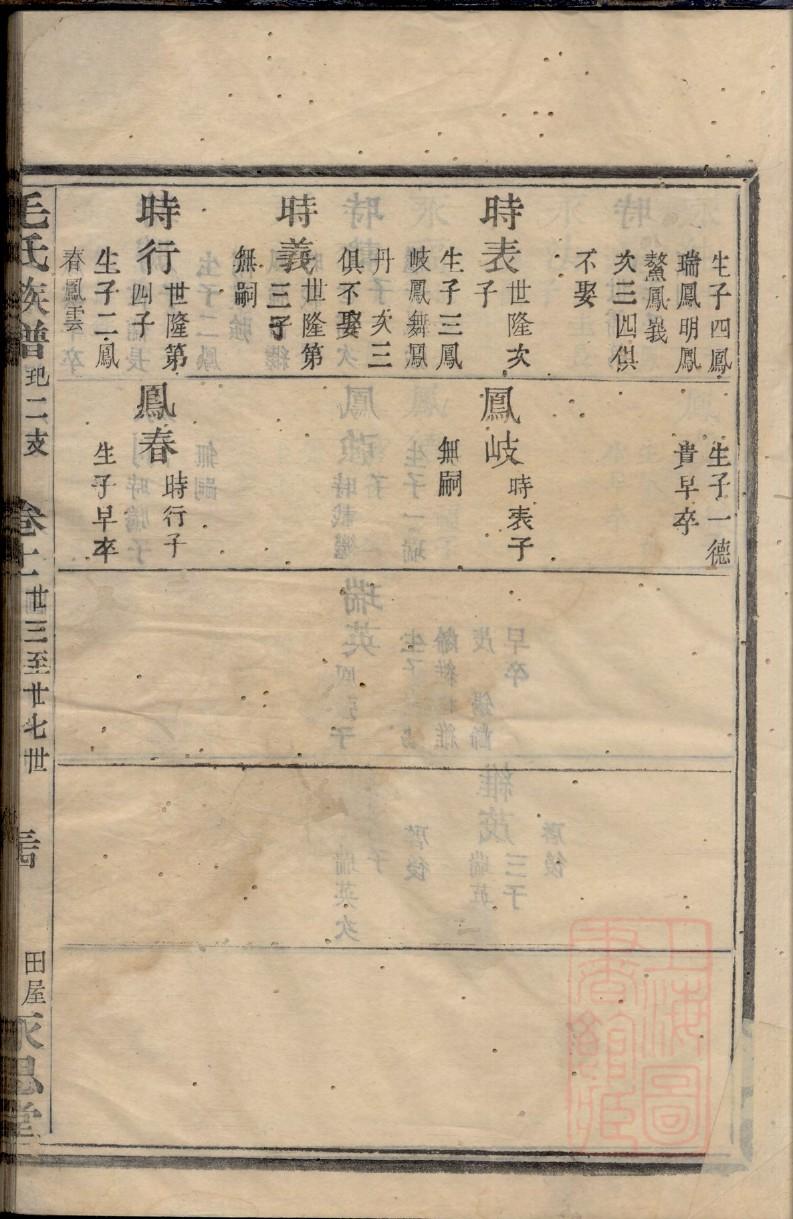 生子四鳳
瑞鳳明鳳
鰲鳳羲
次三四俱
不娶
時表
世隆次
子
生子三鳳
岐鳳舞鳳
丹 次三
俱不娶
時義
世隆第
三子
無嗣
時行
世隆第
四子
生子二鳳
春鳳雲
生子一德
貴早卒
鳳岐
時表子
無嗣
鳳春
時行子
生子早卒
毛氏族譜 玘二支 卷十一 廿三至廿七世
田屋 永思堂
上海圖
書館藏